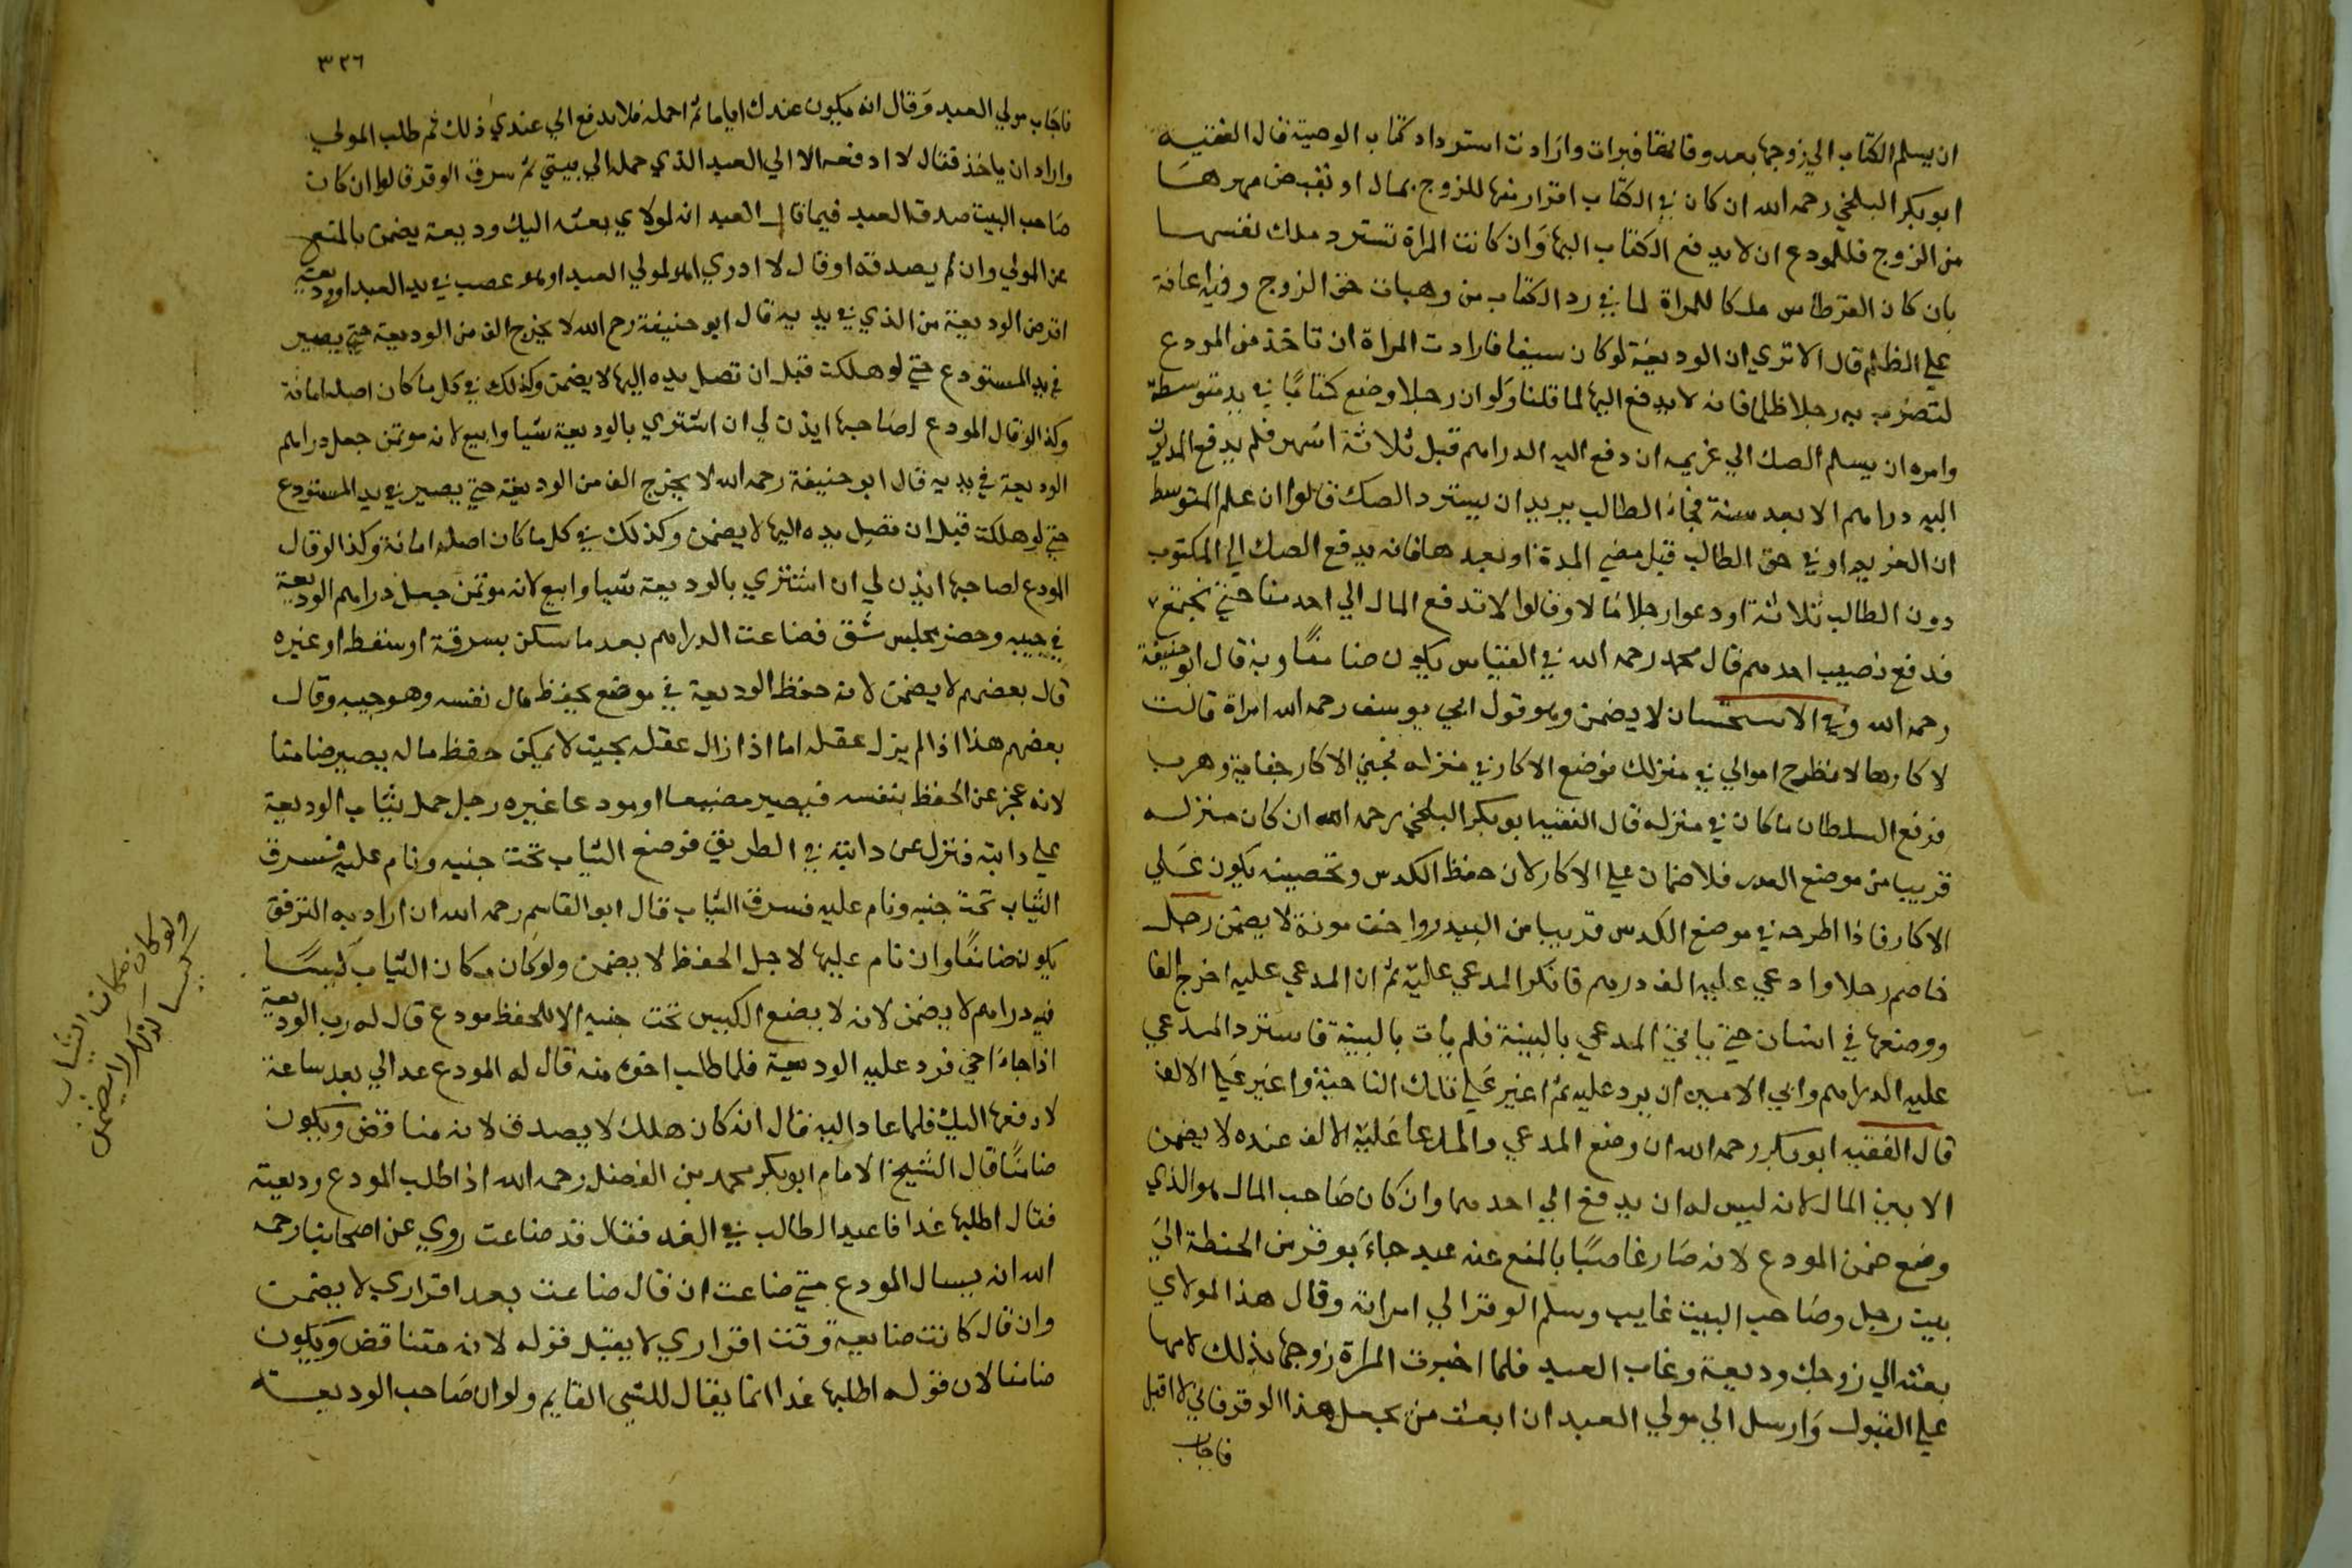 ان يسلم الكتاب الي زوجها بعد وفاتها فبرات وارادت استرداد كتاب الوصية قال الفقيه
ابو بكر البلخي رحمه الله ان كان في الكتاب اقرار منها للزوج بمال او تقبض مهرها
من الزوج فللمودع ان لا يدفع الكتاب اليها وان كانت المراة تسترد ملك نفسها
بان كان القرطاس ملكا للمراة لما في رد الكتاب من وهبات حق الزوج وفيه اعانة
علي الظلم قال الا تري ان الوديعة لو كان سيفا فارادت المراة ان تاخذ من المودع
لتضرب به رجلا ظلما فانه لا يدفع اليها لما قلنا ولو ان رجلا وضع كتابا في يد متوسطة
وامره ان يسلم الصك الي غريمه ان دفع اليه الدراهم قبل ثلاثة اشهر فلم يدفع المديون
اليه دراهم الا بعد سنة فجاء الطالب يريد ان يسترد الصك قالوا ان علم المتوسط
ان الغريم اوفي حق الطالب قبل مضي المدة او بعدها فانه يدفع الصك الي المكتوب
دون الطالب ثلاثة اودعوا رجلا مالا وقالوا لا تدفع المال الي احد منا حتي نجتمع
فدفع نصيب احدهم قال محمد رحمه الله في القياس يكون ضامنا وبه قال ابو حنيفة
رحمه الله وفي الاستحسان لا يضمن وهو قول ابي يوسف رحمه الله امراة قالت
لاكارها لا تطرح اموالي في منزلك فوضع الاكار في منزله فجني الاكار جناية وهرب
فرفع السلطان ما كان في منزله قال الفقيه ابو بكر البلخي رحمه الله ان كان منزله
قريبا من موضع البيدر فلا ضمان علي الاكار لان حفظ الكدس وتحصينه يكون علي
الاكار فاذا اطرحه في موضع الكدس قريبا من البيدر واخف مونة لا يضمن رجل
خاصم رجلا وادعي عليه الف درهم فانكر المدعي عليه ثم ان المدعي عليه اخرج الفا
ووضعها في انسان حتي ياتي المدعي بالبينة فلم يات بالبينة فاسترد المدعي
عليه الدراهم وابي الامين ان يرد عليه ثم اغير علي تلك الناحية واغير علي الالف
قال الفقيه ابو بكر رحمه الله ان وضع المدعي والمدعا عليه الالف عنده لا يضمن
الامين المال لانه ليس له ان يدفع الي احدهما وان كان صاحب المال هو الذي
وضع ضمن المودع لانه صار غاصبا بالمنع عنه عبد جاء بوقر من الحنطة الي
بيت رجل وصاحب البيت غايب وسلم الوقر الي امراته وقال هذا لمولاي
بعثه الي زوجك وديعة وغاب العبد فلما اخبرت المراة زوجها بذلك لامها
علي القبول وارسل الي مولي العبد ان ابعث من يحمل هذا الوقر فاني لا اقبل
فاجاب
٣٢٦
فاجاب مولي العبد وقال انه يكون عندك اياما ثم احمله فلا تدفع الي عبدي ذلك ثم طلب المولي
واراد ان ياخذ فقال لا ادفعه الا الي العبد الذي حمله الي بيتي ثم سرق الوقر قالوا ان كان
صاحب البيت صدق العبد فيما قال العبد انه لمولاي بعثه اليك وديعة يضمن بالمنع
عن المولي وان لم يصدقه او قال لا ادري اهو لمولي العبد او هو غصب في يد العبد او وديعة
اقرض الوديعة من الذي في يديه قال ابو حنيفة رحمه الله لا يخرج الف من الوديعة حتي يصير
في يد المستودع حتي لو هلكت قبل ان تصل يده اليها لا يضمن وكذلك في كل ما كان اصله امانة
وكذا لو قال المودع لصاحبها ايذن لي ان اشتري بالوديعة شيا وابيع لانه موتمن جعل دراهم
الوديعة في يديه قال ابو حنيفة رحمه الله لا يخرج الف من الوديعة حتي يصير في يد المستودع
حتي لو هلكت قبل ان تصل يده اليها لا يضمن وكذلك في كل ما كان اصله امانة وكذا لو قال
المودع لصاحبها ايذن لي ان اشتري بالوديعة شيا وابيع لانه موتمن جعل دراهم الوديعة
في جيبه وحضر مجلس فسق فضاعت الدراهم بعد ما سكر بسرقة او سقط او غيره
قال بعضهم لا يضمن لانه حفظ الوديعة في موضع يحفظ مال نفسه وهو جيبه وقال
بعضهم هذا اذا لم يزل عقله اما اذا زال عقله بحيث لا يمكن حفظ ماله يصير ضامنا
لانه عجز عن الحفظ بنفسه فيصير مضيعا او مودعا غيره رجل حمل ثياب الوديعة
علي دابته فنزل عن دابته في الطريق فوضع الثياب تحت جنبه ونام عليه فسرق
الثياب تحت جنبه ونام عليه فسرق الثياب قال ابو القاسم رحمه الله ان اراد به الترفق
يكون ضامنا وان نام عليها لاجل الحفظ لا يضمن ولو كان مكان الثياب كيسا
فيه دراهم لا يضمن لانه لا يضع الكيس تحت جنبه الا للحفظ مودع قال له رب الوديعة
اذا جاء اخي فرد عليه الوديعة فلما طلب اخوه منه قال له المودع عد الي بعد ساعة
لادفعها اليك فلما عاد اليه قال انه كان هلك لا يصدق لانه مناقض ويكون
ضامنا قال الشيخ الامام ابو بكر محمد بن الفضل رحمه الله اذا طلب المودع وديعته
فقال اطلبها غدا فاعيد الطالب في الغد فقال قد ضاعت روي عن اصحابنا رحمه
الله انه يسال المودع متي ضاعت ان قال ضاعت بعد اقراري لا يضمن
وان قال كانت ضايعة وقت اقراري لا يقبل قوله لانه متناقض ويكون
ضامنا لان قوله اطلبها غدا انما يقال للشي القايم ولو ان صاحب الوديعة
ولو كان مكان الثياب
كيسا لا يضمن